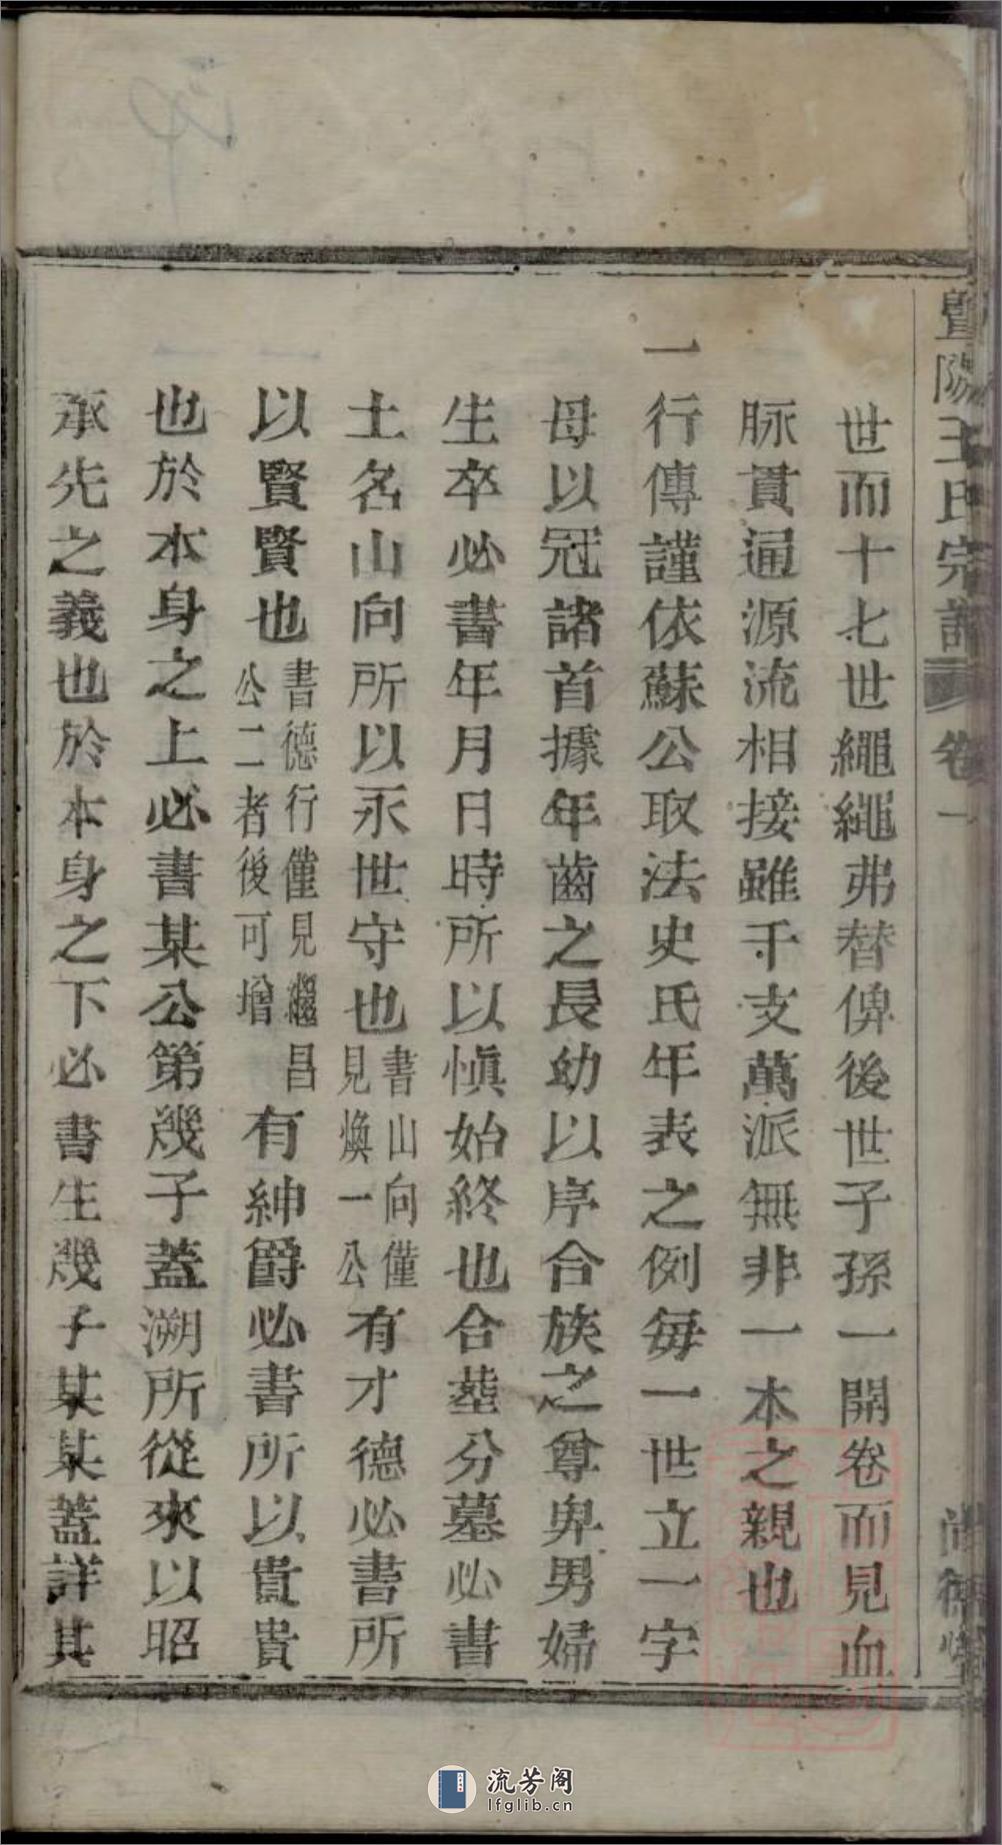 暨陽王氏宗譜 卷一
世而十七世繩繩弗替俾後世子孫一開卷而見血
脉貫通源流相接雖千支萬派無非一本之親也
一行傳謹依蘇公取法史氏年表之例每一世立一字
母以冠諸首據年齒之長幼以序合族之尊卑男婦
生卒必書年月日時所以愼始終也合塟分墓必書
土名山向所以永世守也書山向僅見煥一公有才德必書所
以賢賢也書德行僅見繼昌公二者後可增有紳爵必書所以貴貴
也於本身之上必書某公第幾子蓋溯所從來以昭
承先之義也於本身之下必書生幾子某某蓋詳其
流芳阁
lfglib.cn